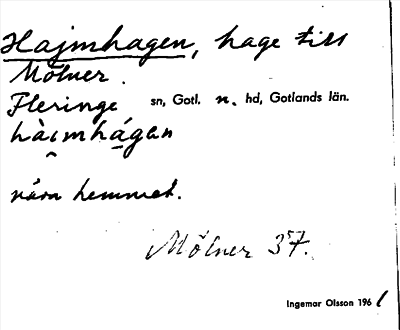 Hajmhagen, hage till
Mölner.
Fleringe sn, Gotl. n. hd, Gotlands län.
hàimhágan
närn hemmet.
Mölner 37.
Ingemar Olsson 1961